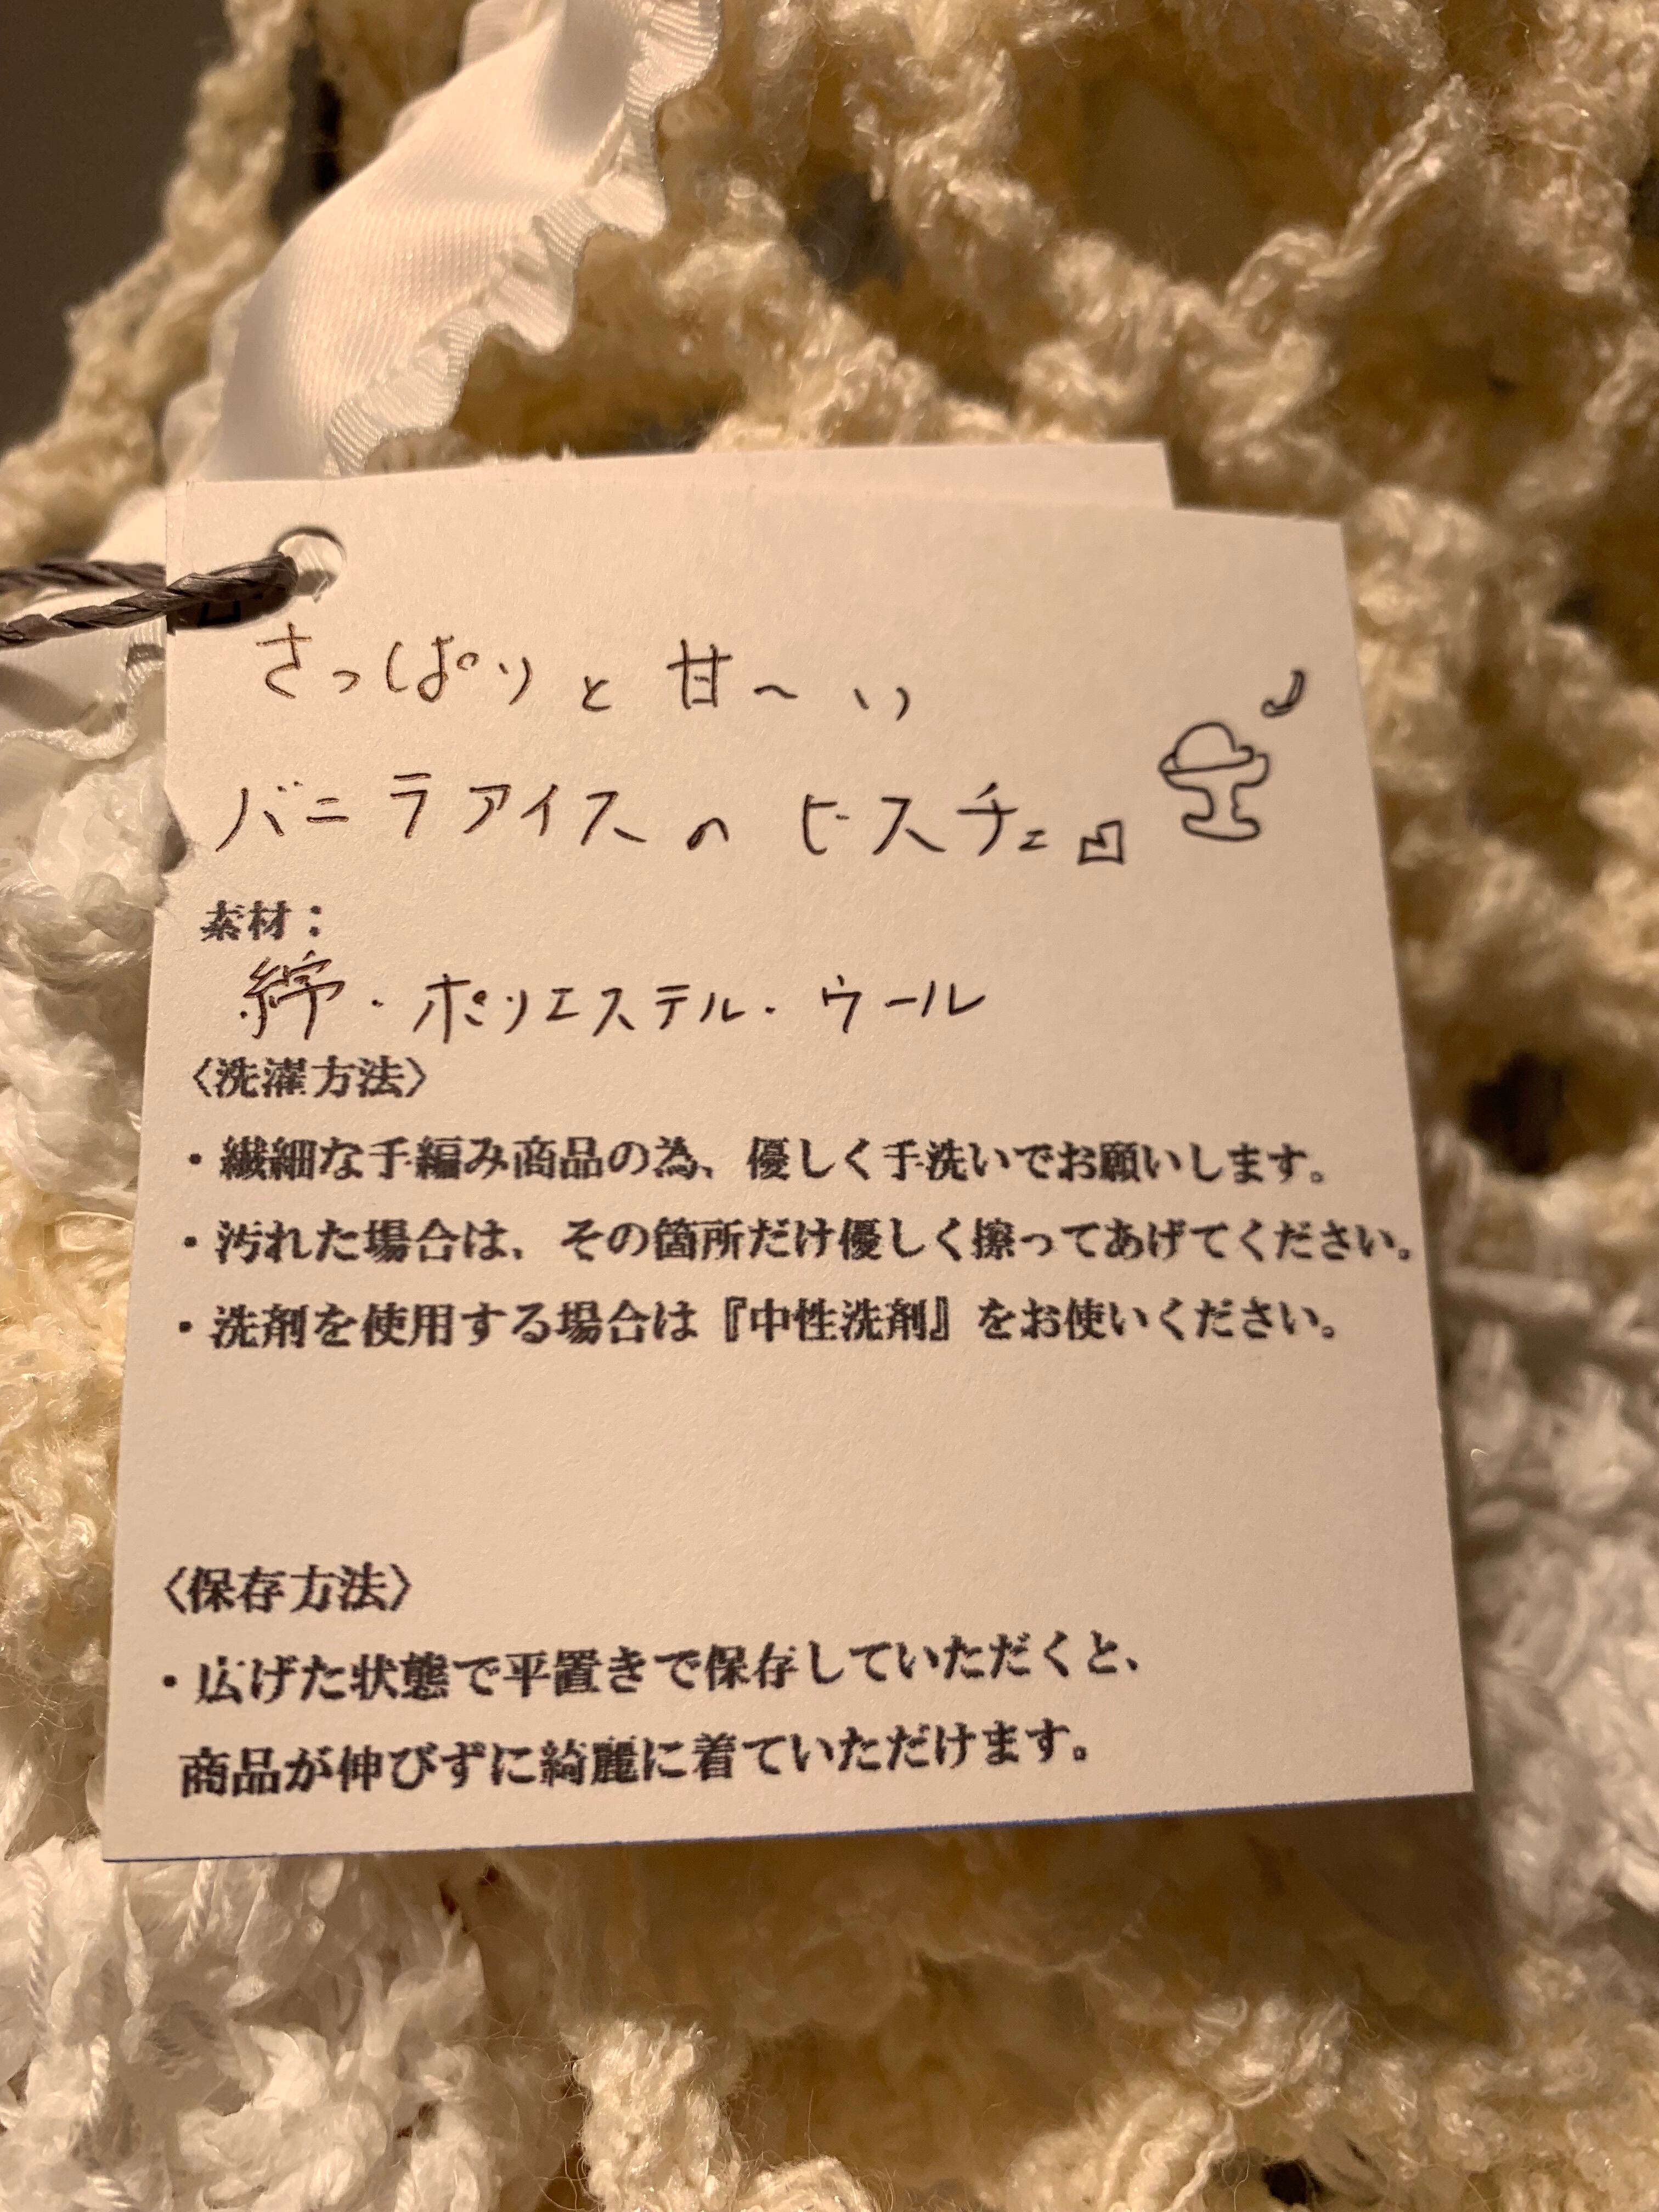 さっぱりと甘〜い
バニラアイスのビスチェ
素材：
綿・ポリエステル・ウール
〈洗濯方法〉
・繊細な手編み商品の為、優しく手洗いでお願いします。
・汚れた場合は、その箇所だけ優しく擦ってあげてください。
・洗剤を使用する場合は『中性洗剤』をお使いください。
〈保存方法〉
・広げた状態で平置きで保存していただくと、
商品が伸びずに綺麗に着ていただけます。